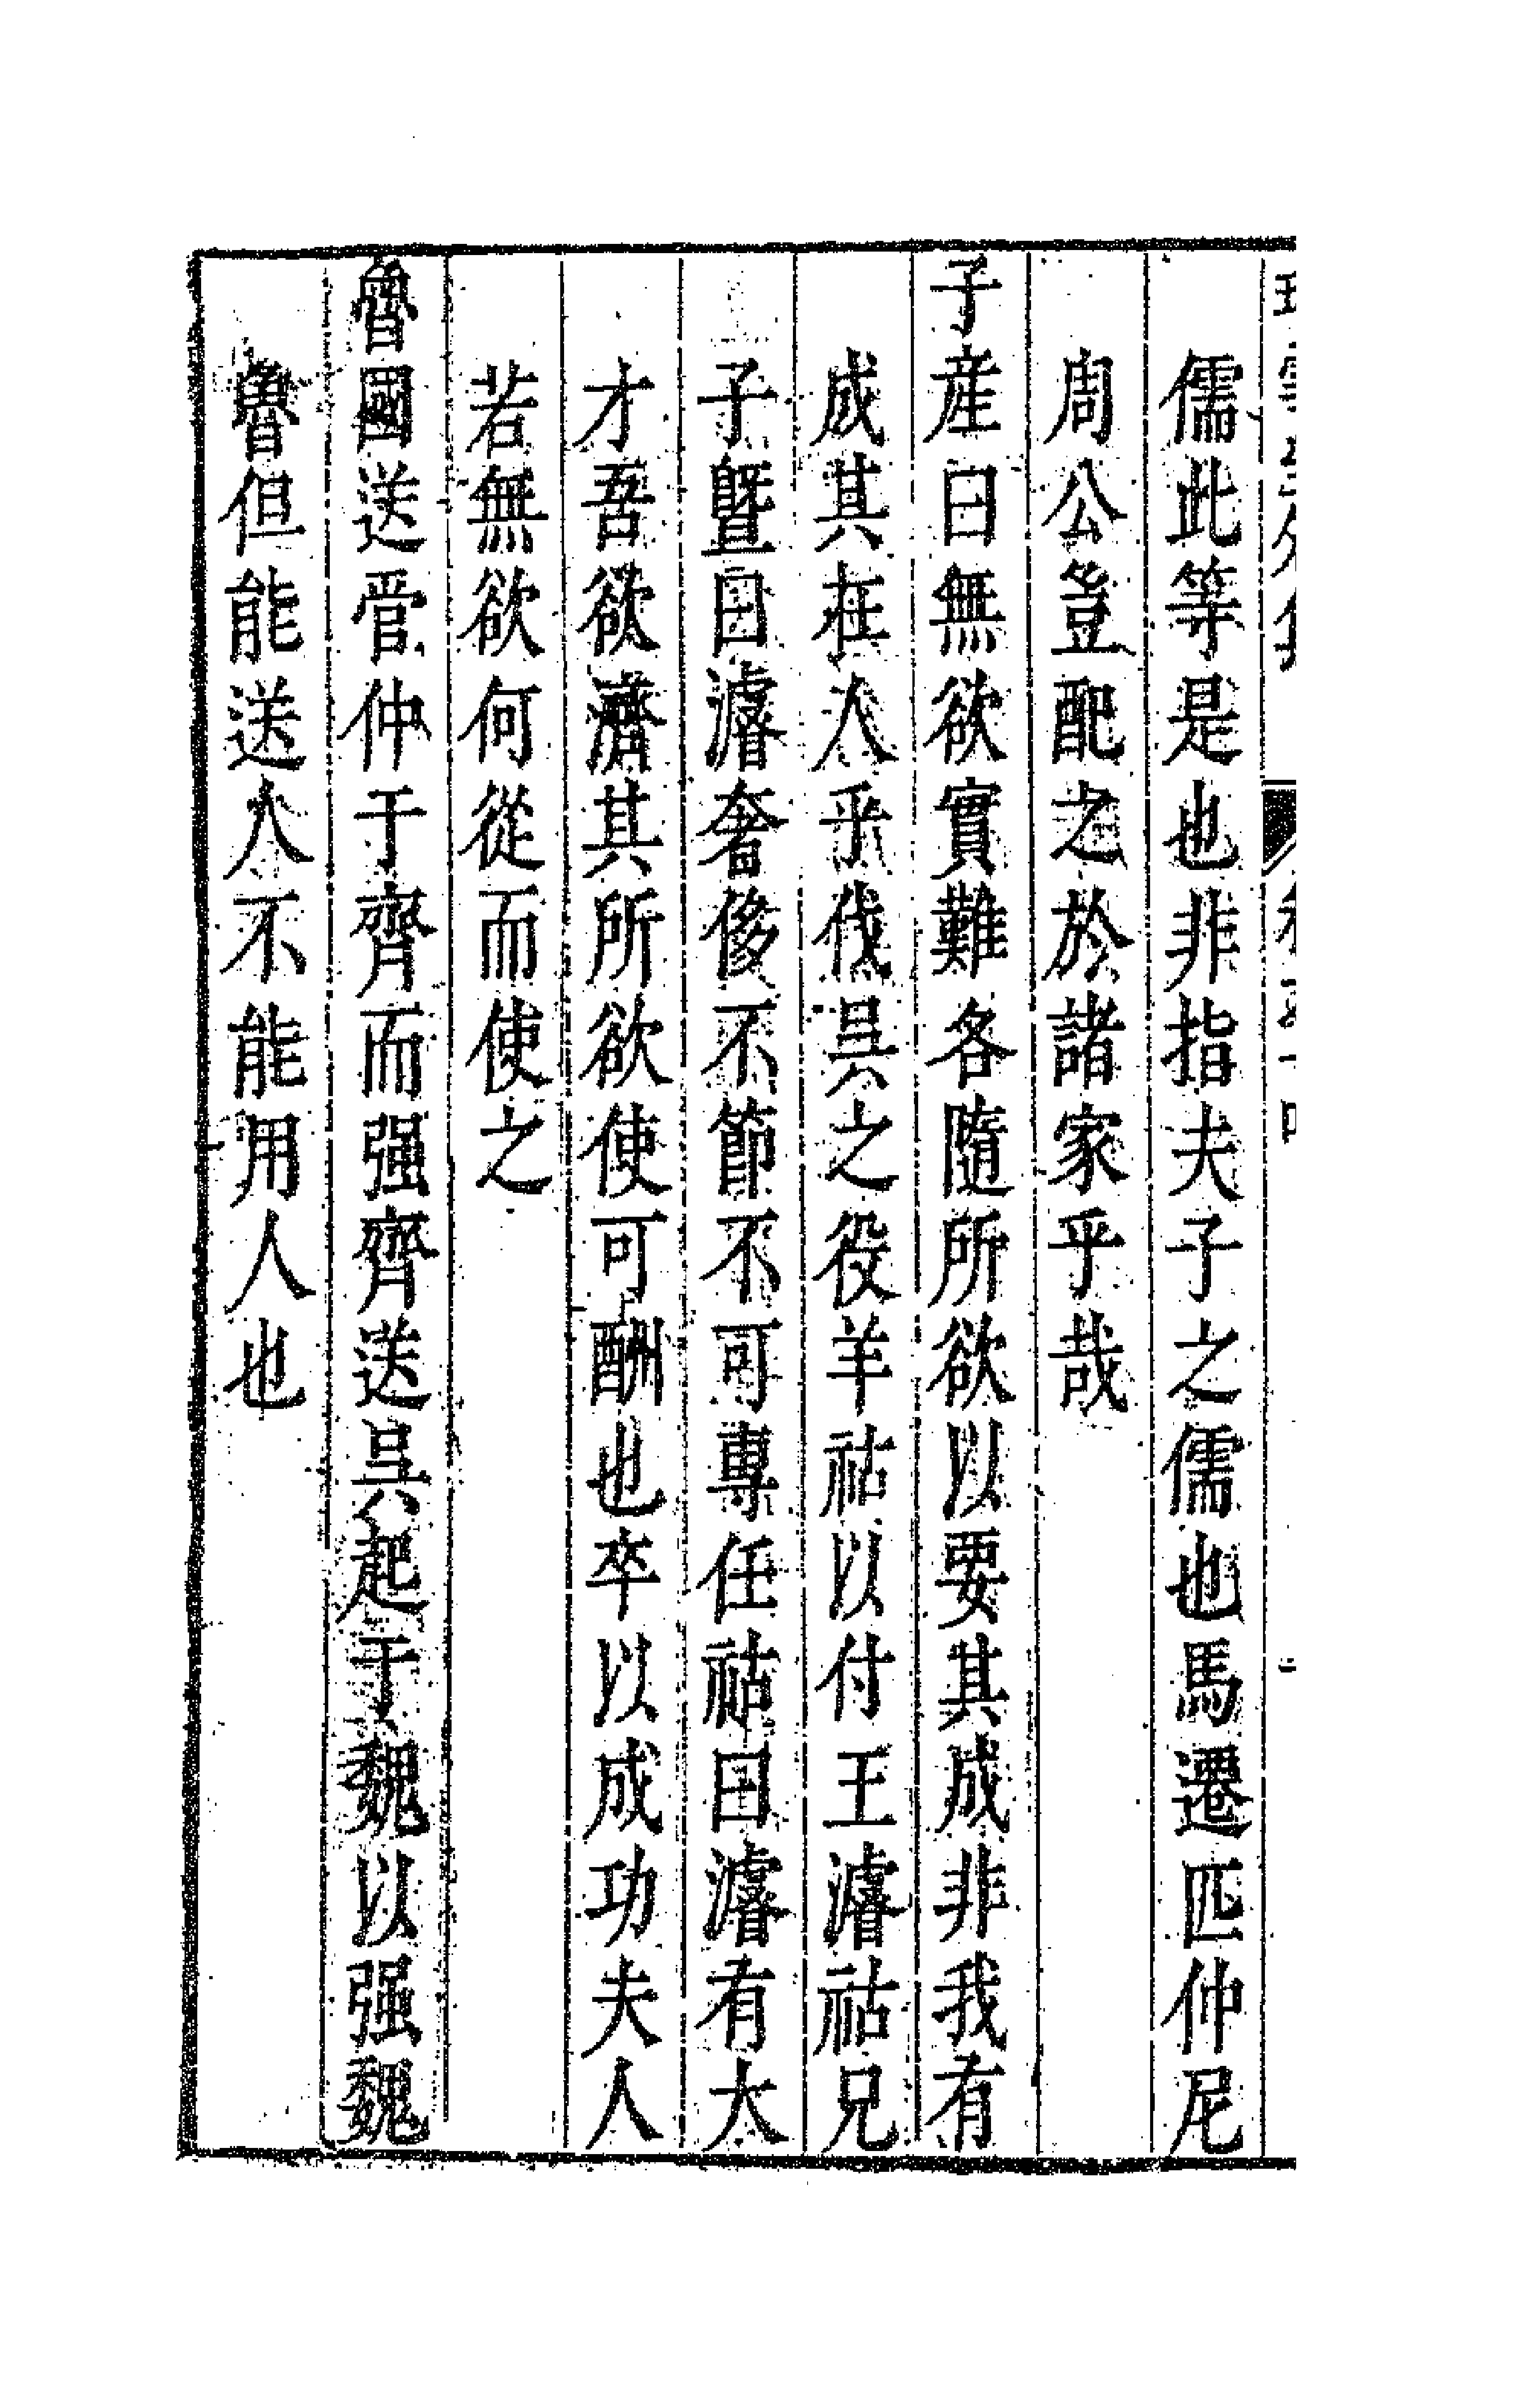 儒此等是也非指夫子之儒也馬遷匹仲尼
周公豈配之於諸家乎哉
子產曰無欲實難各隨所欲以要其成非我有
成其在人乎伐吳之役羊祜以付王濬祜兄
子曁曰濬奢侈不節不可專任祜曰濬有大
才吾欲濟其所欲使可酬也卒以成功夫人
若無欲何從而使之
魯國送管仲于齊而强齊送吳起于魏以强魏
魯但能送人不能用人也